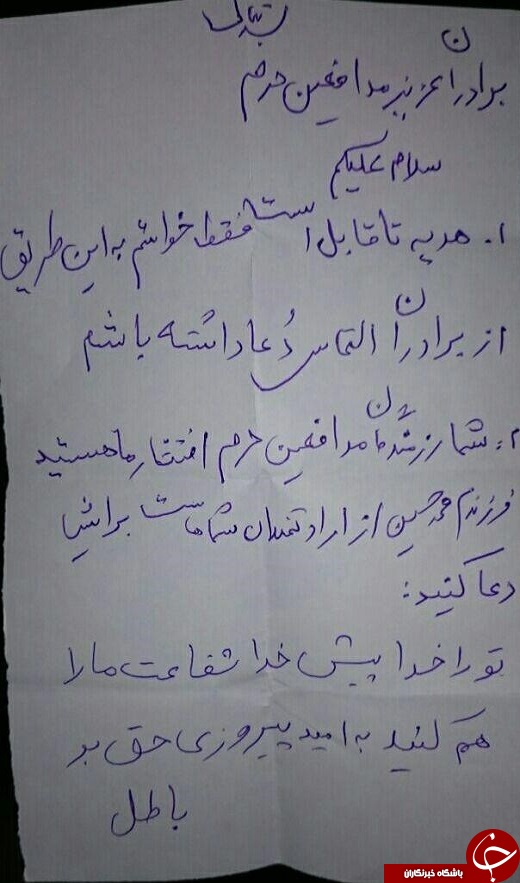 برادران عزیز مدافعین حرم
سلام علیکم
۱. هدیه ناقابل است فقط خواستم به این طریق
از برادران التماس دعا داشته باشم
۲: شما رزمندگان مدافعین حرم افتخار ما هستید
فرزندم محمدحسین از ارادتمندان شماست برایش
دعا کنید:
تو را خدا پیش خدا شفاعت ما را
هم کنید به امید پیروزی حق بر
باطل
باشگاه خبرنگاران